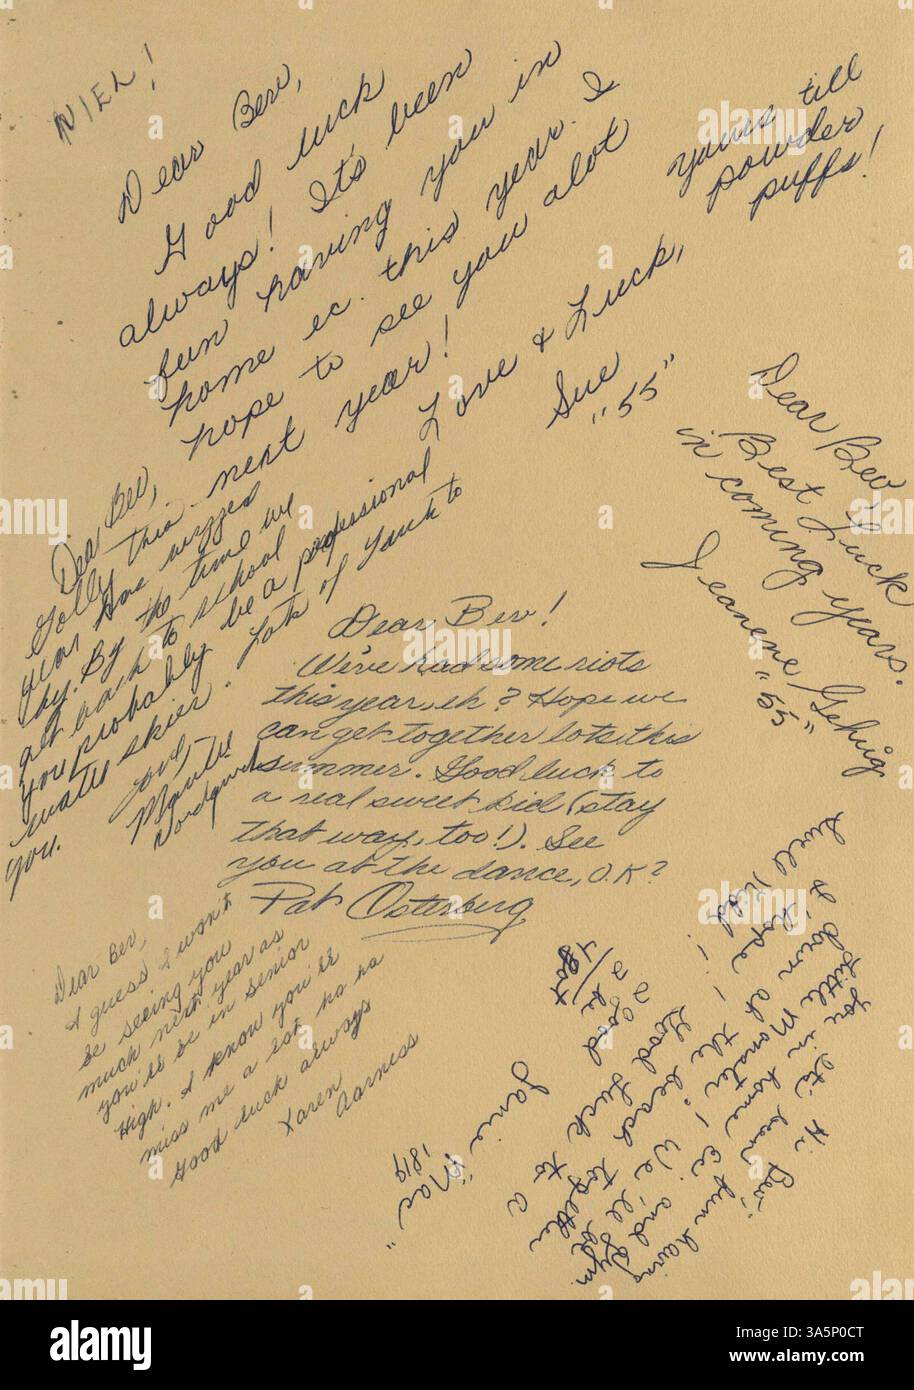 NIEL!
Dear Bev,
Good luck
always! It's been
fun having you in
home ec. this year. I
hope to see you alot
next year!
Love & Luck,
Sue
"55"
yours till
powder
puffs!
Dear Bev,
Golly this
year has
by. By the time we
get back to school
you probably be a professional
water skier. Lots of luck to
you.
Love,
Dear Bev
Best Luck
in coming years.
Jeanene
"55"
Dear Bev!
We've had some riots
this year, eh? Hope we
can get together lots this
summer. Good luck to
a real sweet kid (stay
that way, too!). See
you at the dance, O.K?
Pat Osterberg
Dear Bev,
I guess I won't
be seeing you
much next year as
you'll be in senior
High. I know you'll
miss me a lot ha ha
Good luck always
Karen
Aarness
Hi Bev,
It's been fun having
you in home ec and gym
Little Monster! We'll
down at the beach together
I hope! Good luck to a
Swell Kid!
2 Good
2 be
4got
Janie "Mac"
1819
alamy
Image ID: 3A5P0CT
www.alamy.com